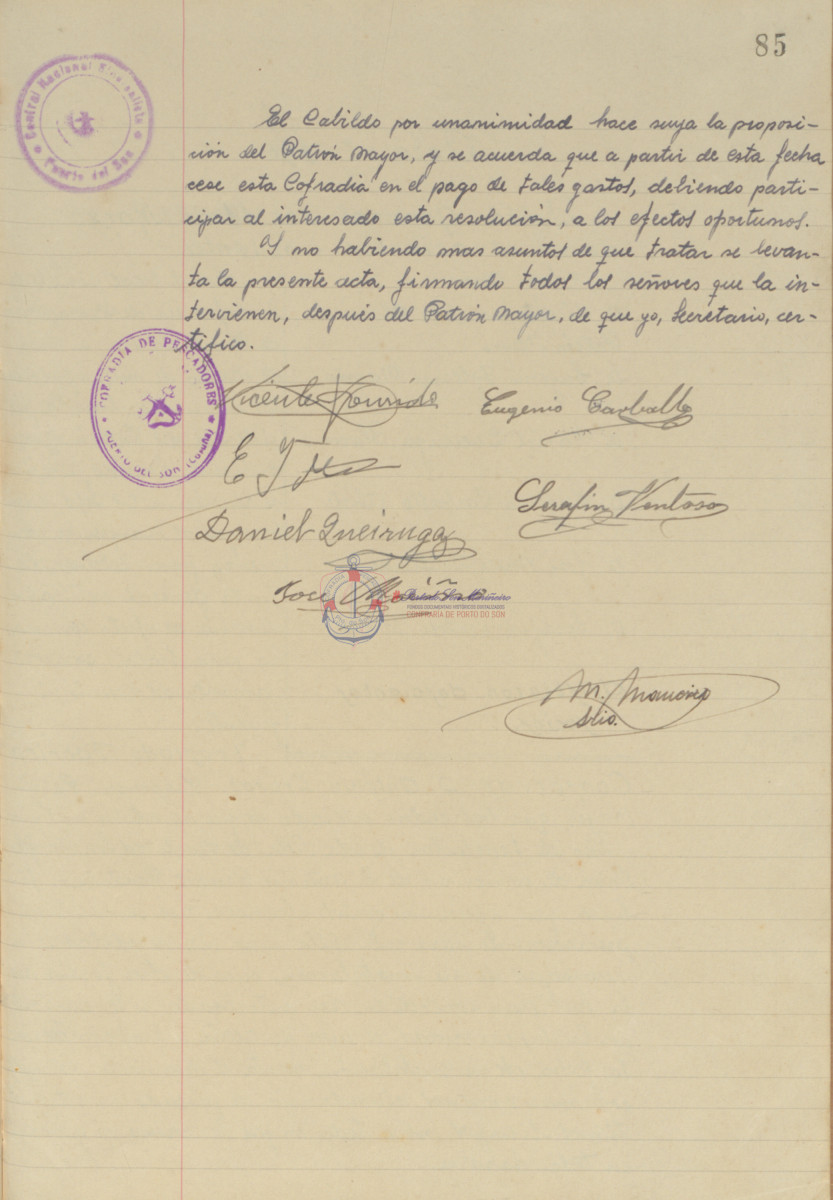 85
Central Nacional Sindicalista
Puerto del Son
El Cabildo por unanimidad hace suya la proposi-
ción del Patrón Mayor, y se acuerda que a partir de esta fecha
cese esta Cofradía en el pago de tales gastos, debiendo parti-
cipar al interesado esta resolución, a los efectos oportunos.
Y no habiendo mas asuntos de que tratar se levan-
ta la presente acta, firmando todos los señores que la in-
tervienen, después del Patrón Mayor, de que yo, Secretario, cer-
tifico.
COFRADIA DE PESCADORES
PUERTO DEL SON (CORUÑA)
Vicente
Eugenio Carballo
Serafin Ventoso
Daniel Queiruga
Jose
FONDOS DOCUMENTAIS HISTÓRICOS DIXITALIZADOS
CONFRARÍA DE PORTO DO SON
M.
Srio.